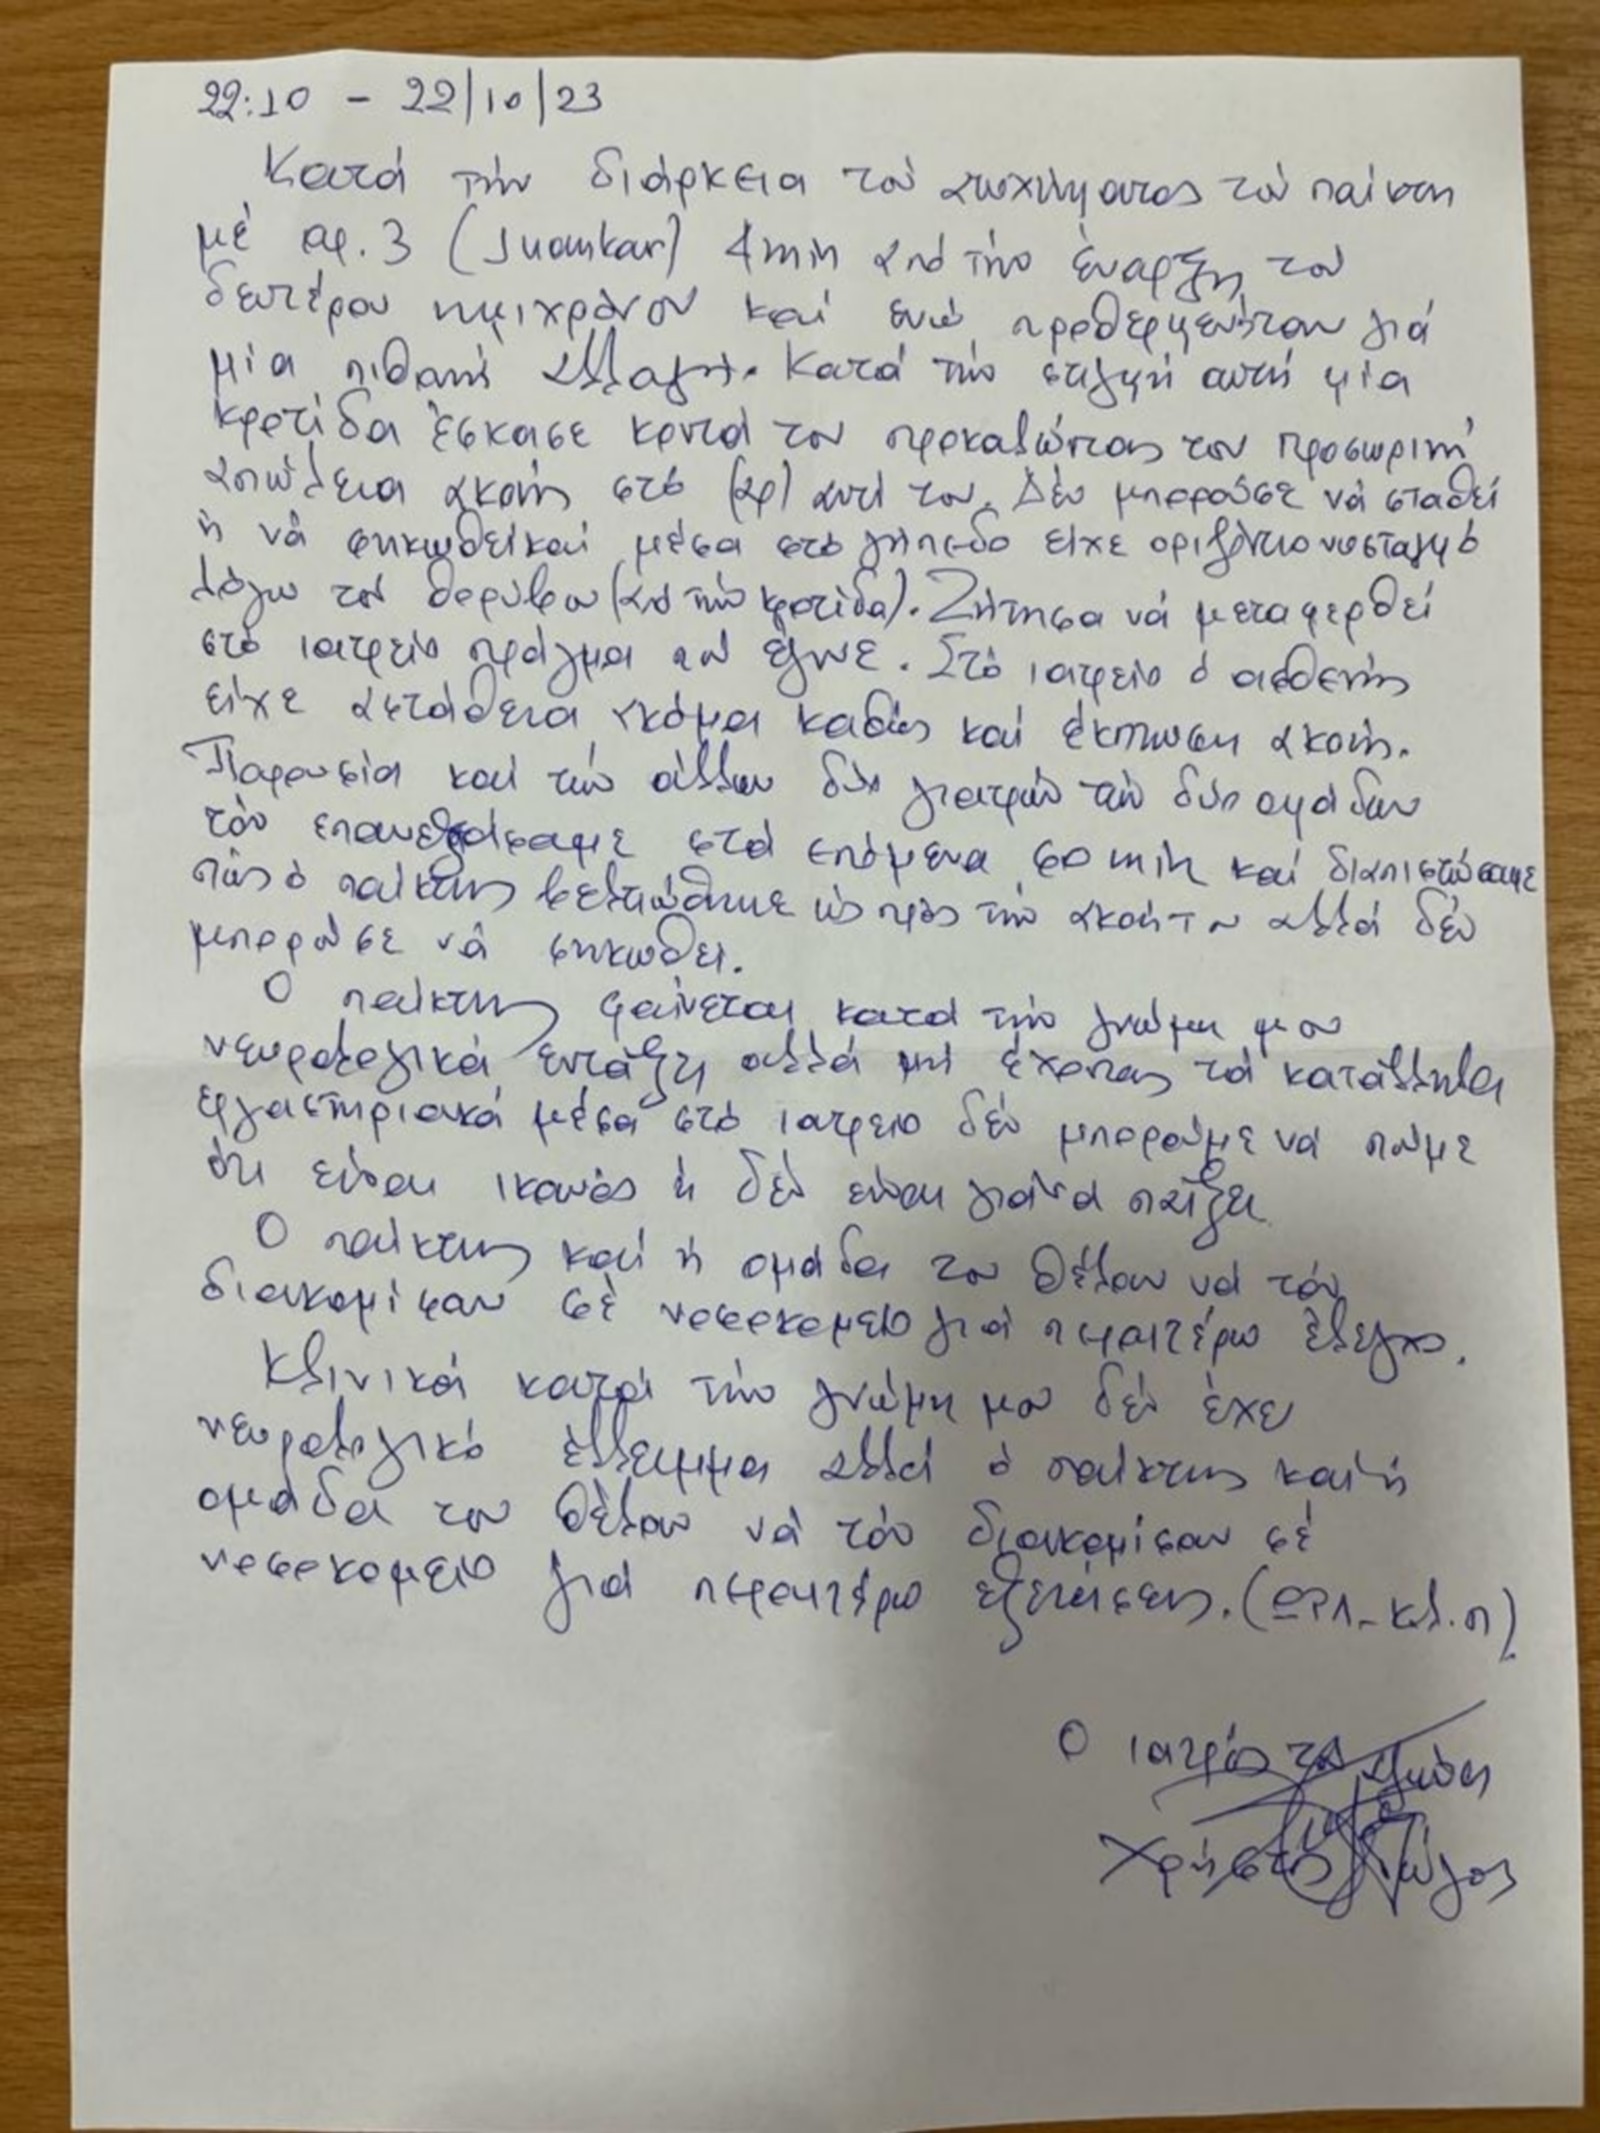 22:10 - 22/10/23
Κατά τήν διάρκεια τού ατυχήματος τού παίκτη
μέ αρ. 3 (Juankar) 4min από τήν έναρξη του
δευτέρου ημιχρόνου καί ενώ προθερμενόταν γιά
μία πιθανή αλλαγή. Κατά τήν στιγμή αυτή μία
κροτίδα έσκασε κοντά του προκαλώντας του προσωρινή
απώλεια ακοής στό (αρ) αυτί του. Δέν μπορούσε νά σταθεί
ή νά σηκωθεί καί μέσα στό γήπεδο είχε οριζόντιο νυσταγμό
λόγω τού θορύβου (από τήν κροτίδα). Ζήτησα νά μεταφερθεί
στό ιατρείο πράγμα πού έγινε. Στό ιατρείο ό ασθενής
είχε αστάθεια ακόμα καθώς καί έκπτωση ακοής.
Παρουσία καί τών άλλων δύο γιατρών τών δύο ομάδων
τόν επανεξετάσαμε στά επόμενα min καί διαπιστώσαμε
πώς ό παίκτης βελτιώθηκε ώς πρός τήν ακοή του αλλά δέν
μπορούσε νά σηκωθεί.
Ο παίκτης φαίνεται κατά τήν γνώμη μου
νευρολογικά εντάξει αλλά μή έχοντας τά κατάλληλα
εργαστηριακά μέσα στό ιατρείο δέν μπορούμε νά πούμε
ότι είναι ικανός ή δέν είναι γιά νά παίξει
Ο παίκτης καί ή ομάδα του θέλουν νά τόν
διακομίσουν σέ νοσοκομείο γιά περαιτέρω έλεγχο.
Κλινικά κατά τήν γνώμη μου δέν έχει
νευρολογικό έλλειμμα αλλά ό παίκτης καί ή
ομάδα του θέλουν νά τόν διακομίσουν σέ
νοσοκομείο γιά περαιτέρω εξετάσεις. (ΩΡΛ - κλ.π)
Ο ιατρός του αγώνα
Χρήστος